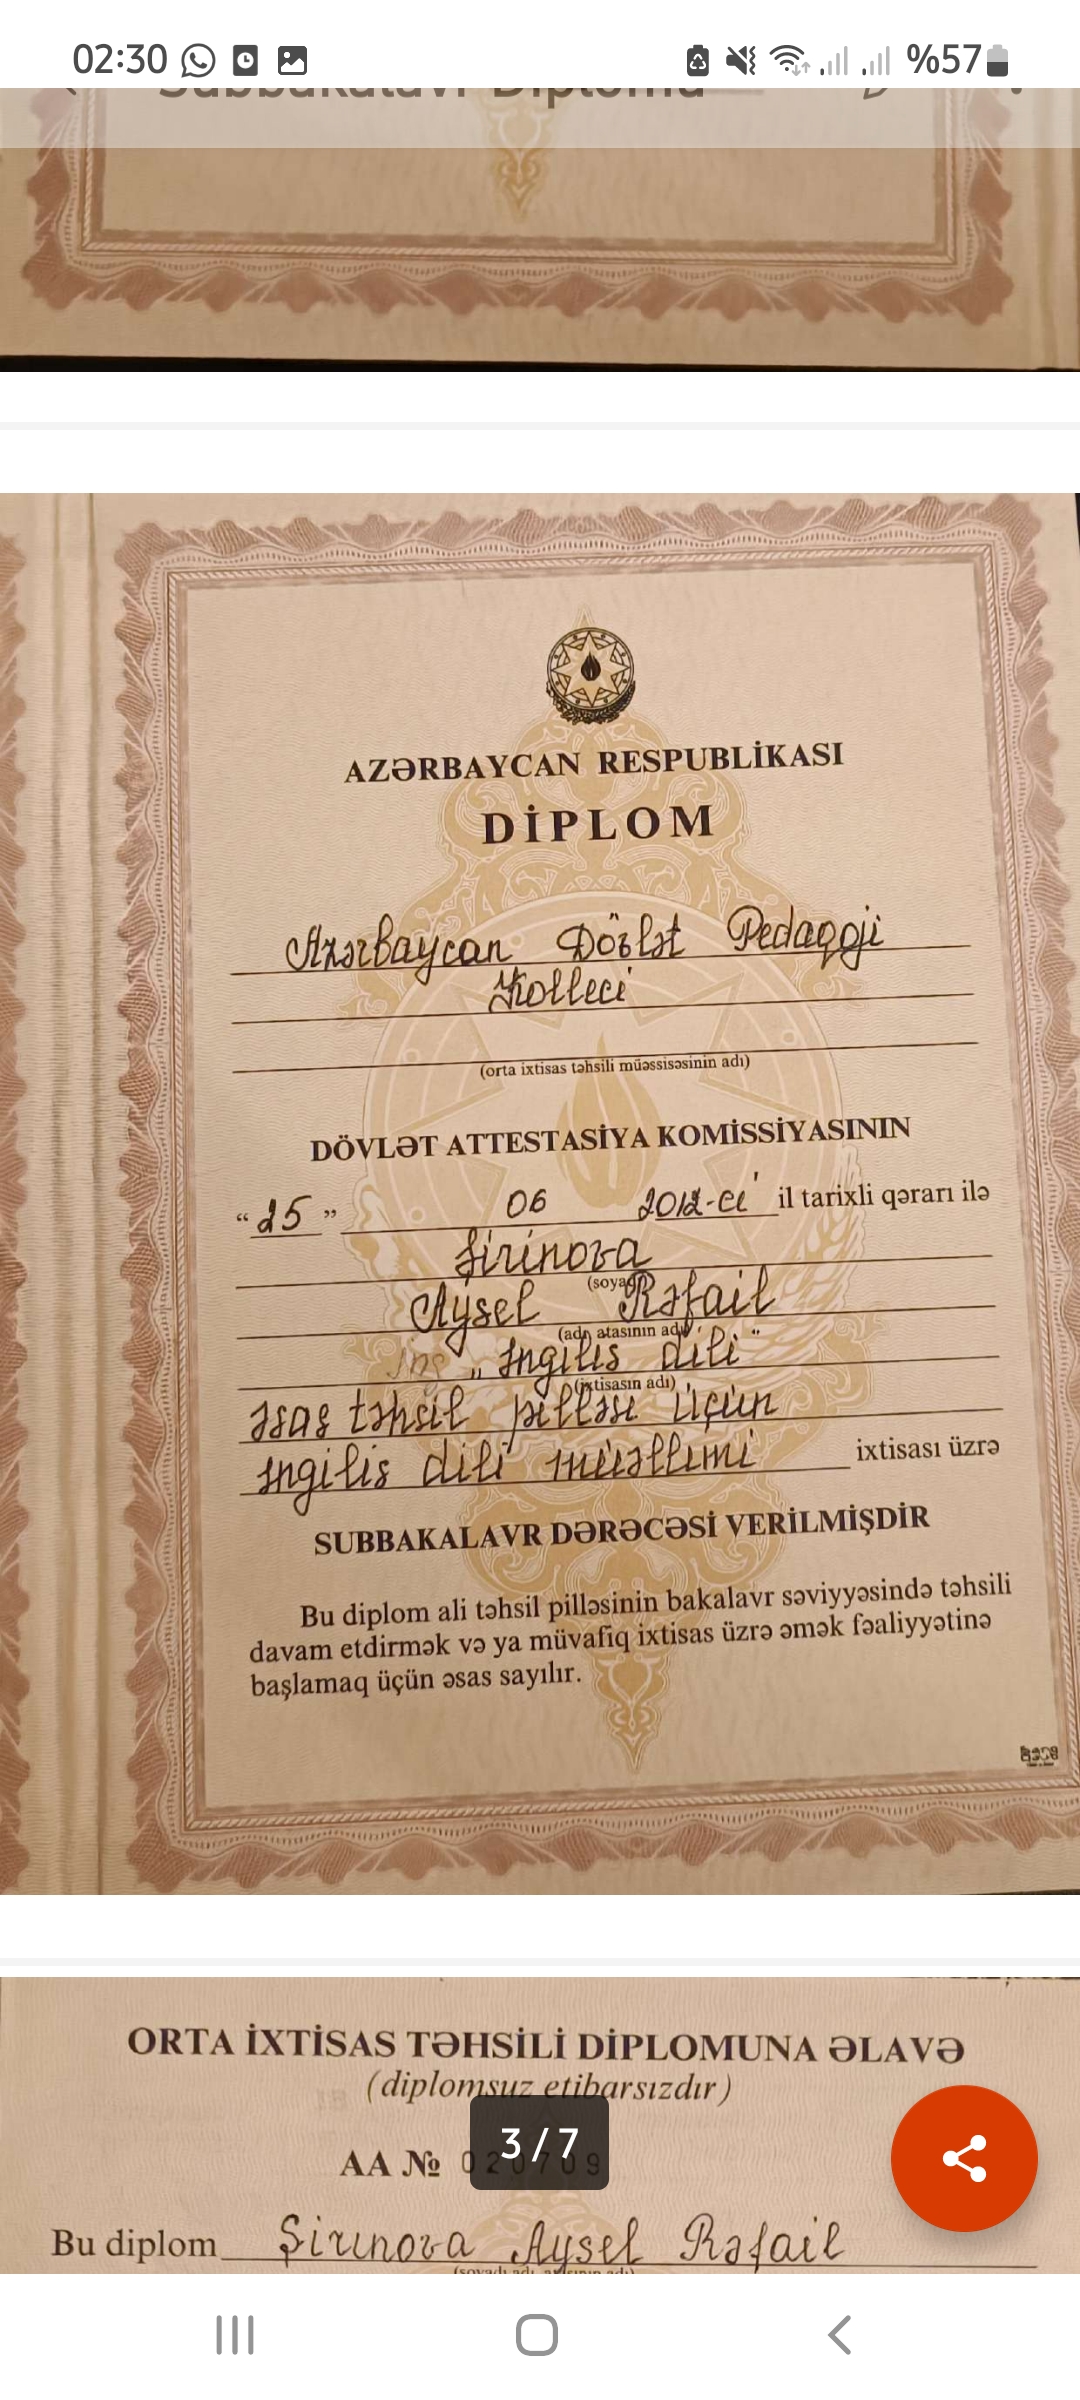 02:30 %57
Subbakalavr Diplomu
AZƏRBAYCAN RESPUBLİKASI
DİPLOM
Azərbaycan Dövlət Pedaqoji
Kolleci
(orta ixtisas təhsili müəssisəsinin adı)
DÖVLƏT ATTESTASİYA KOMİSSİYASININ
“25” 06 2012-ci il tarixli qərarı ilə
Şirinova
Aysel Rəfail
(adı, atasının adı)
„İngilis dili“
(ixtisasın adı)
əsas təhsil pilləsi üçün
İngilis dili müəllimi ixtisası üzrə
SUBBAKALAVR DƏRƏCƏSİ VERİLMİŞDİR
Bu diplom ali təhsil pilləsinin bakalavr səviyyəsində təhsili
davam etdirmək və ya müvafiq ixtisas üzrə əmək fəaliyyətinə
başlamaq üçün əsas sayılır.
ORTA İXTİSAS TƏHSİLİ DİPLOMUNA ƏLAVƏ
(diplomsuz etibarsızdır)
3/7
AA № 020709
Bu diplom Şirinova Aysel Rəfail